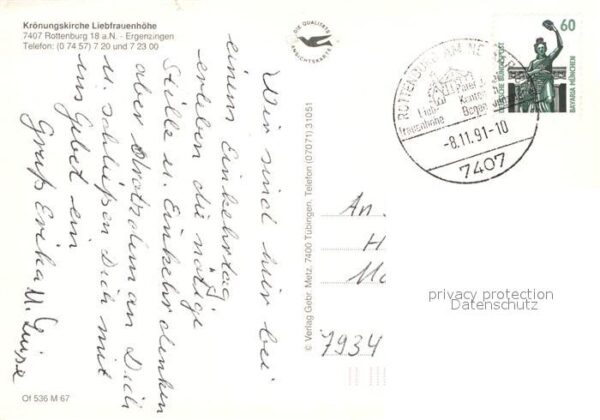 Krönungskirche Liebfrauenhöhe
7407 Rottenburg 18 a.N. - Ergenzingen
Telefon: (0 74 57) 7 20 und 7 23 00
DIE QUALITÄTS
ANSICHTSKARTE
Wir sind hier bei
einem Einkehrtag
erleben die nötige
Stille u. Einkehr denken
aber trotzdem an Dich
u. schließen Dich mit
ins Gebet ein
Gruß Erika u. Luise
Of 536 M 67
© Verlag Gebr. Metz, 7400 Tübingen, Telefon (07071) 31051
ROTTENBURG AM
Lieb-
frauenhöhe
-8.11.91-10
7407
60
DEUTSCHE BUNDESPOST
BAVARIA MÜNCHEN
An
H
7934
privacy protection
Datenschutz